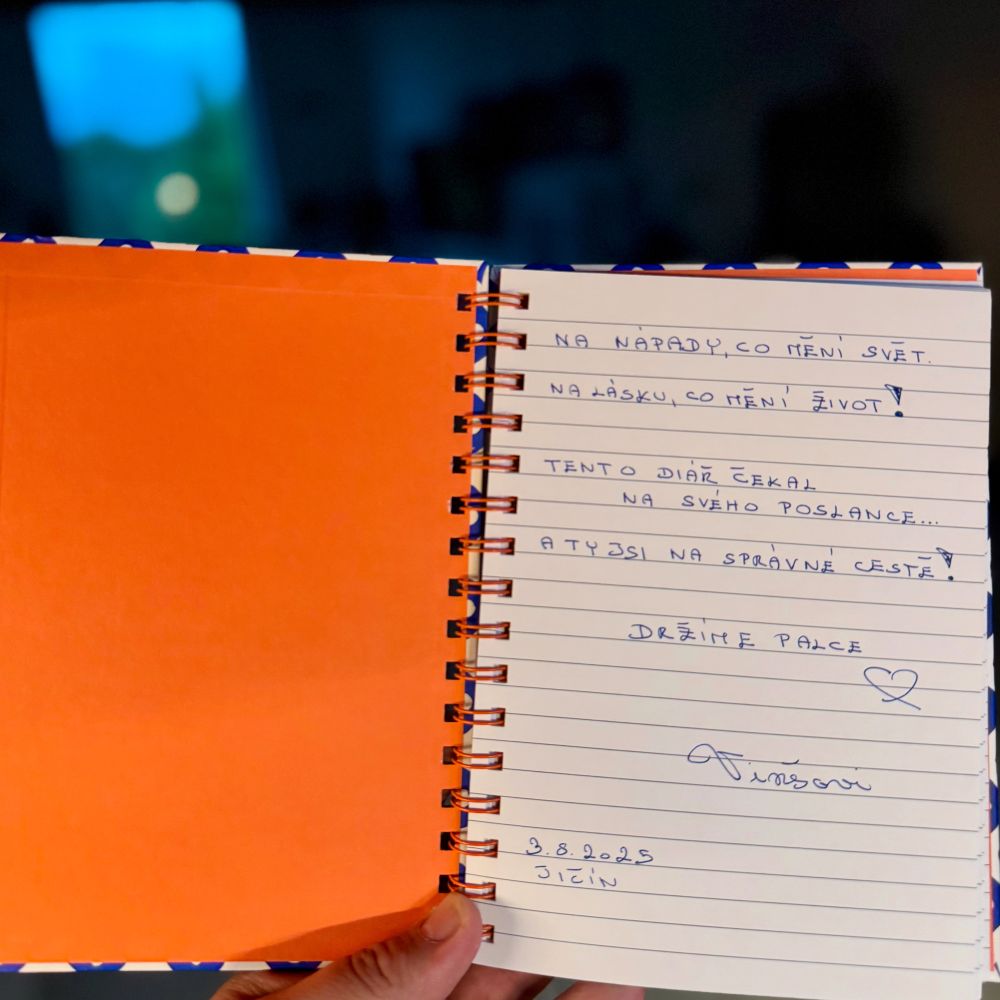 NA NÁPADY, CO MĚNÍ SVĚT.
NA LÁSKU, CO MĚNÍ ŽIVOT!
TENTO DIÁŘ ČEKAL
NA SVÉHO POSLANCE...
A TY JSI NA SPRÁVNÉ CESTĚ!
DRŽÍME PALCE
3.8.2025
JIČÍN